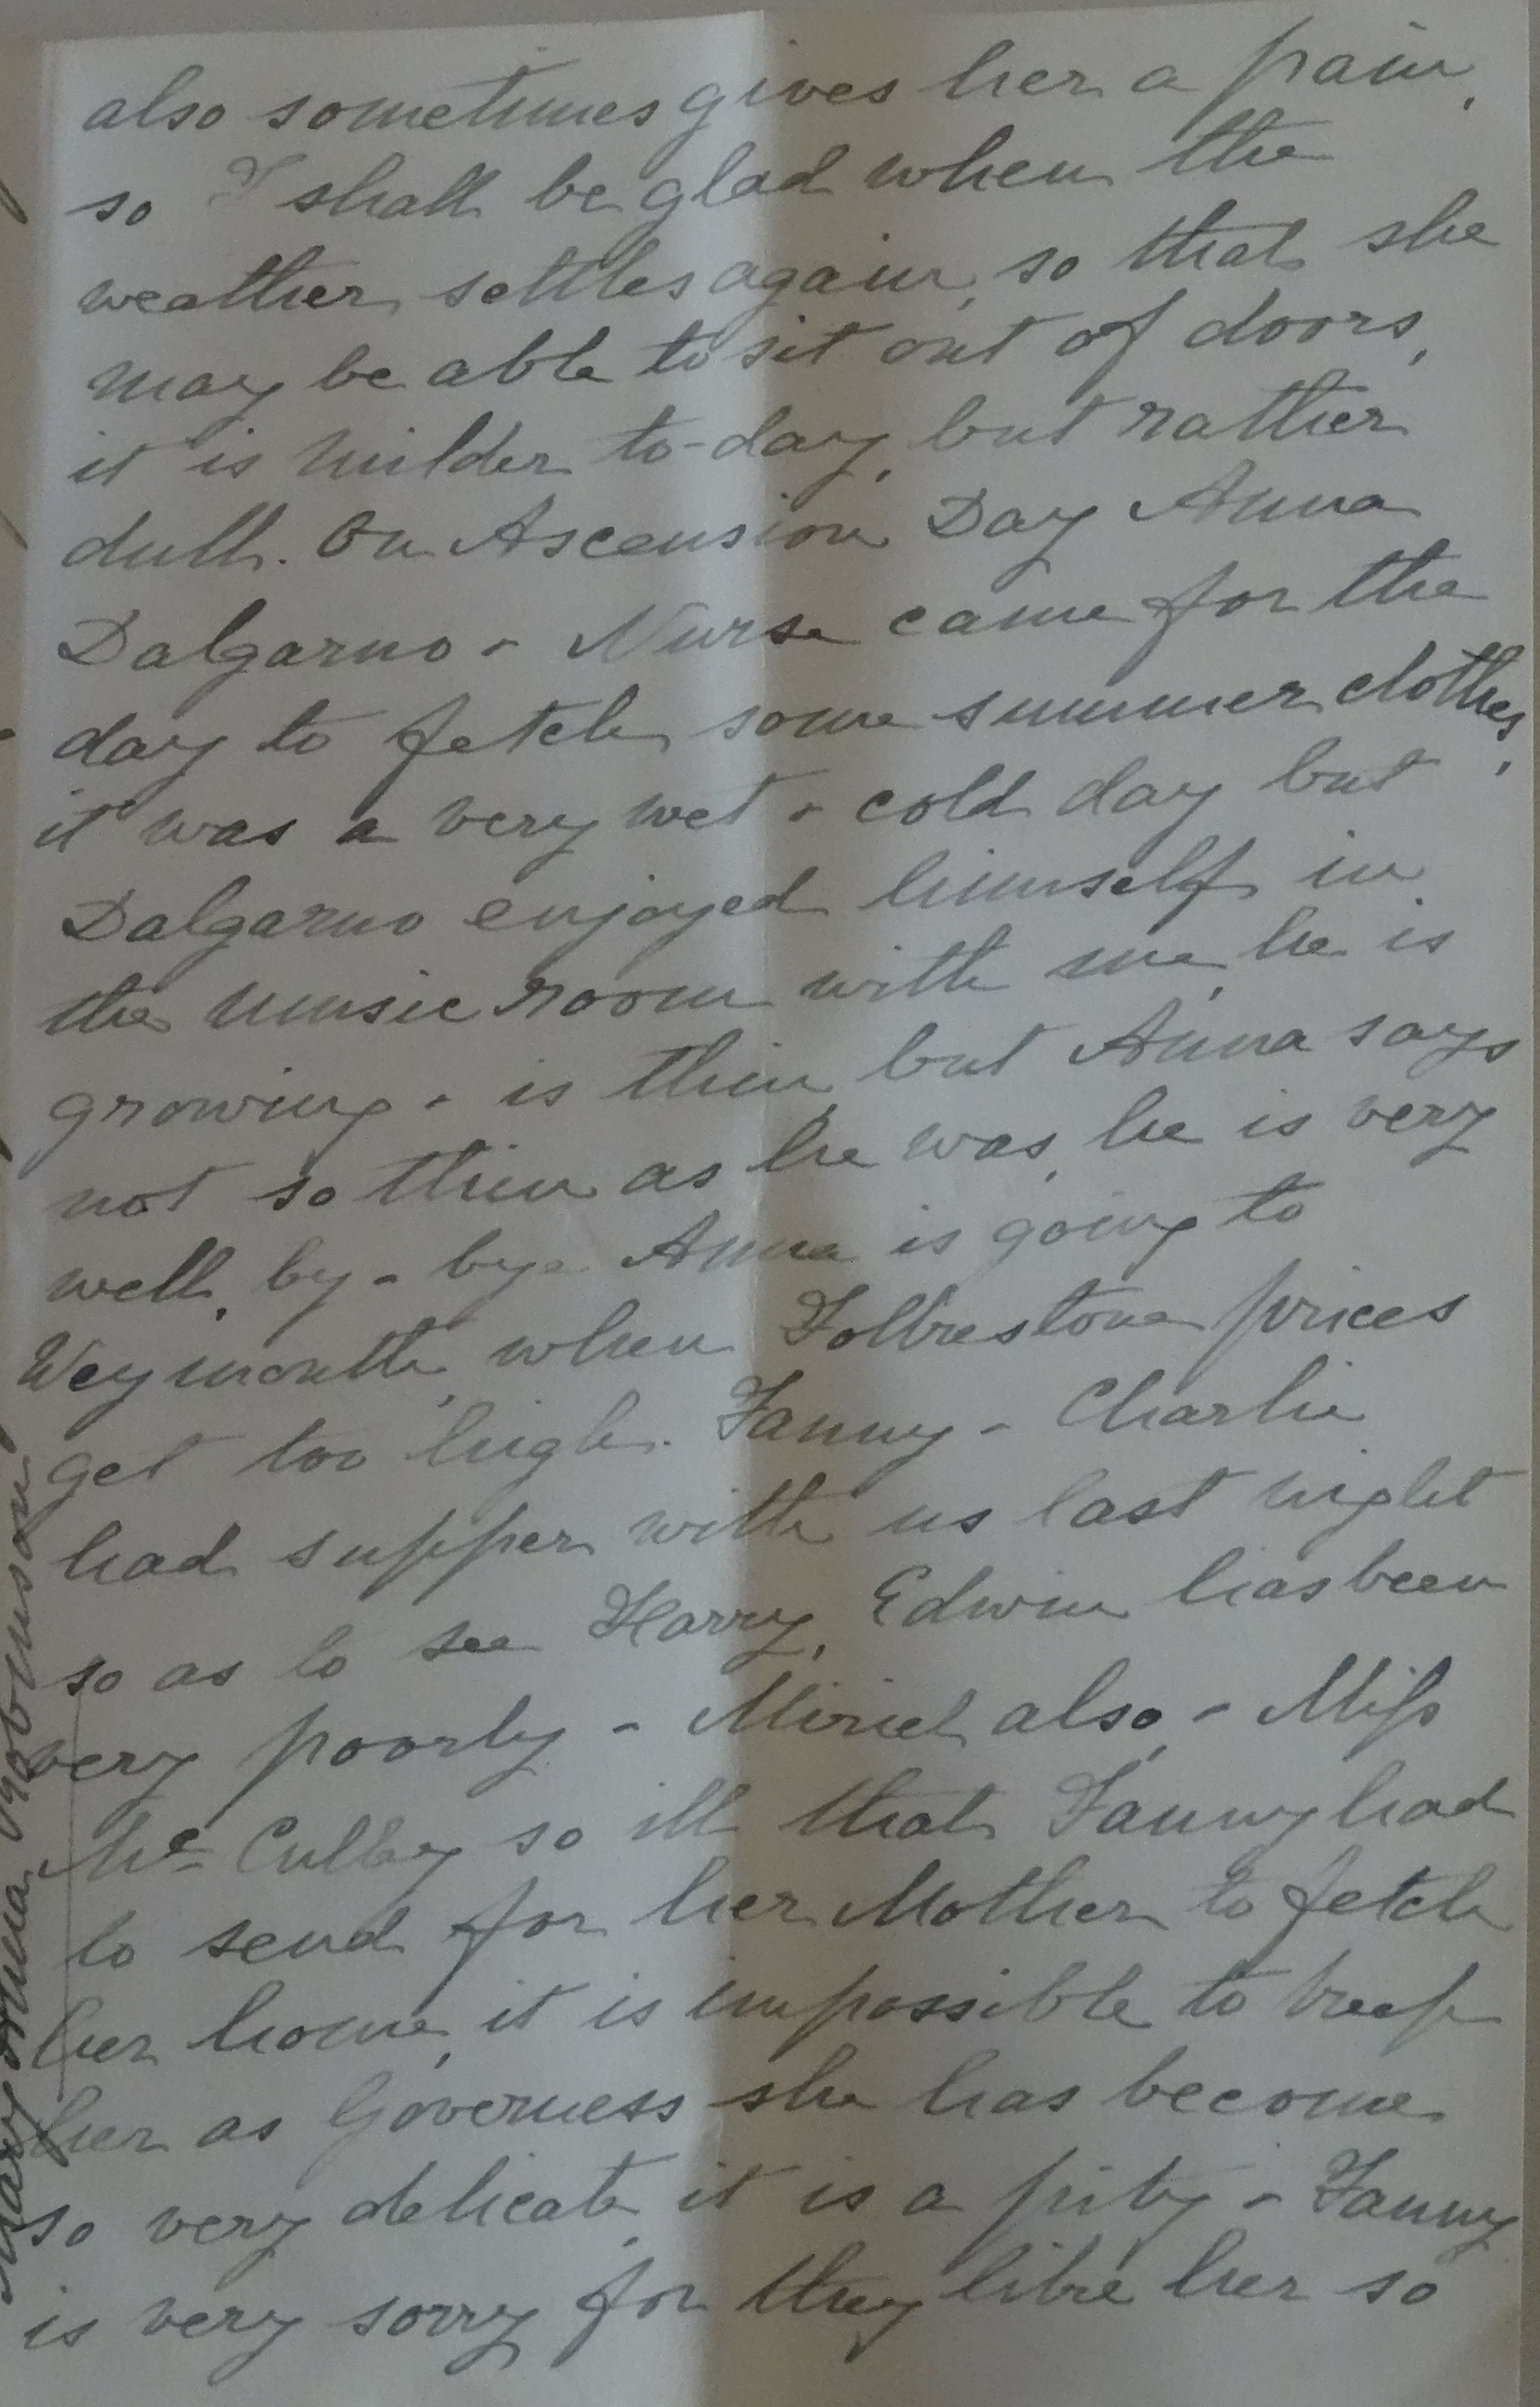 also sometimes gives her a pain,
so I shall be glad when the
weather settles again, so that she
may be able to sit out of doors,
it is milder to-day, but rather
dull. On Ascension Day Anna
Dalgarno - Nurse came for the
day to fetch some summer clothes,
it was a very wet - cold day but
Dalgarno enjoyed himself in
the music room with me, he is
growing - is thin, but Anna says
not so thin as he was, he is very
well, by - bye Anna is going to
Weymouth, when Folkestone prices
get too high. Fanny - Charlie
had supper with us last night
so as to see Harry, Edwin has been
very poorly - Miriel also, - Miss
Mc Culley so ill that Fanny had
to send for her Mother to fetch
her home, it is impossible to keep
her as Governess she has become
so very delicate, it is a pity - Fanny
is very sorry for they like her so
Mary Anna Robinson